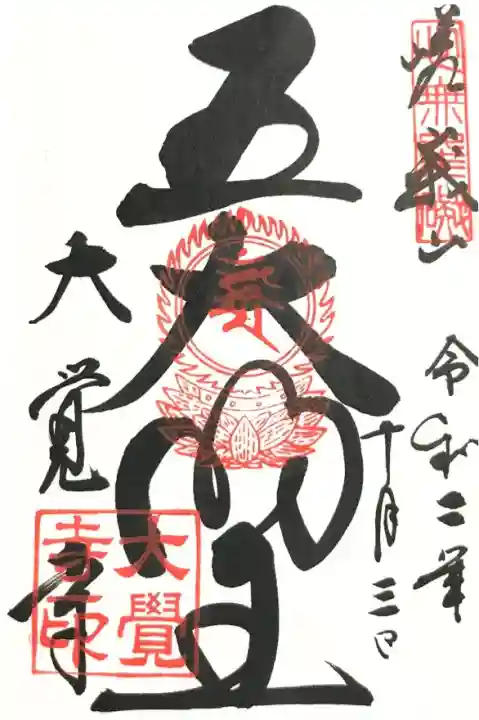 嵯峨山
令和二年
十月三日
五大明王
大覚寺
大覺
寺印